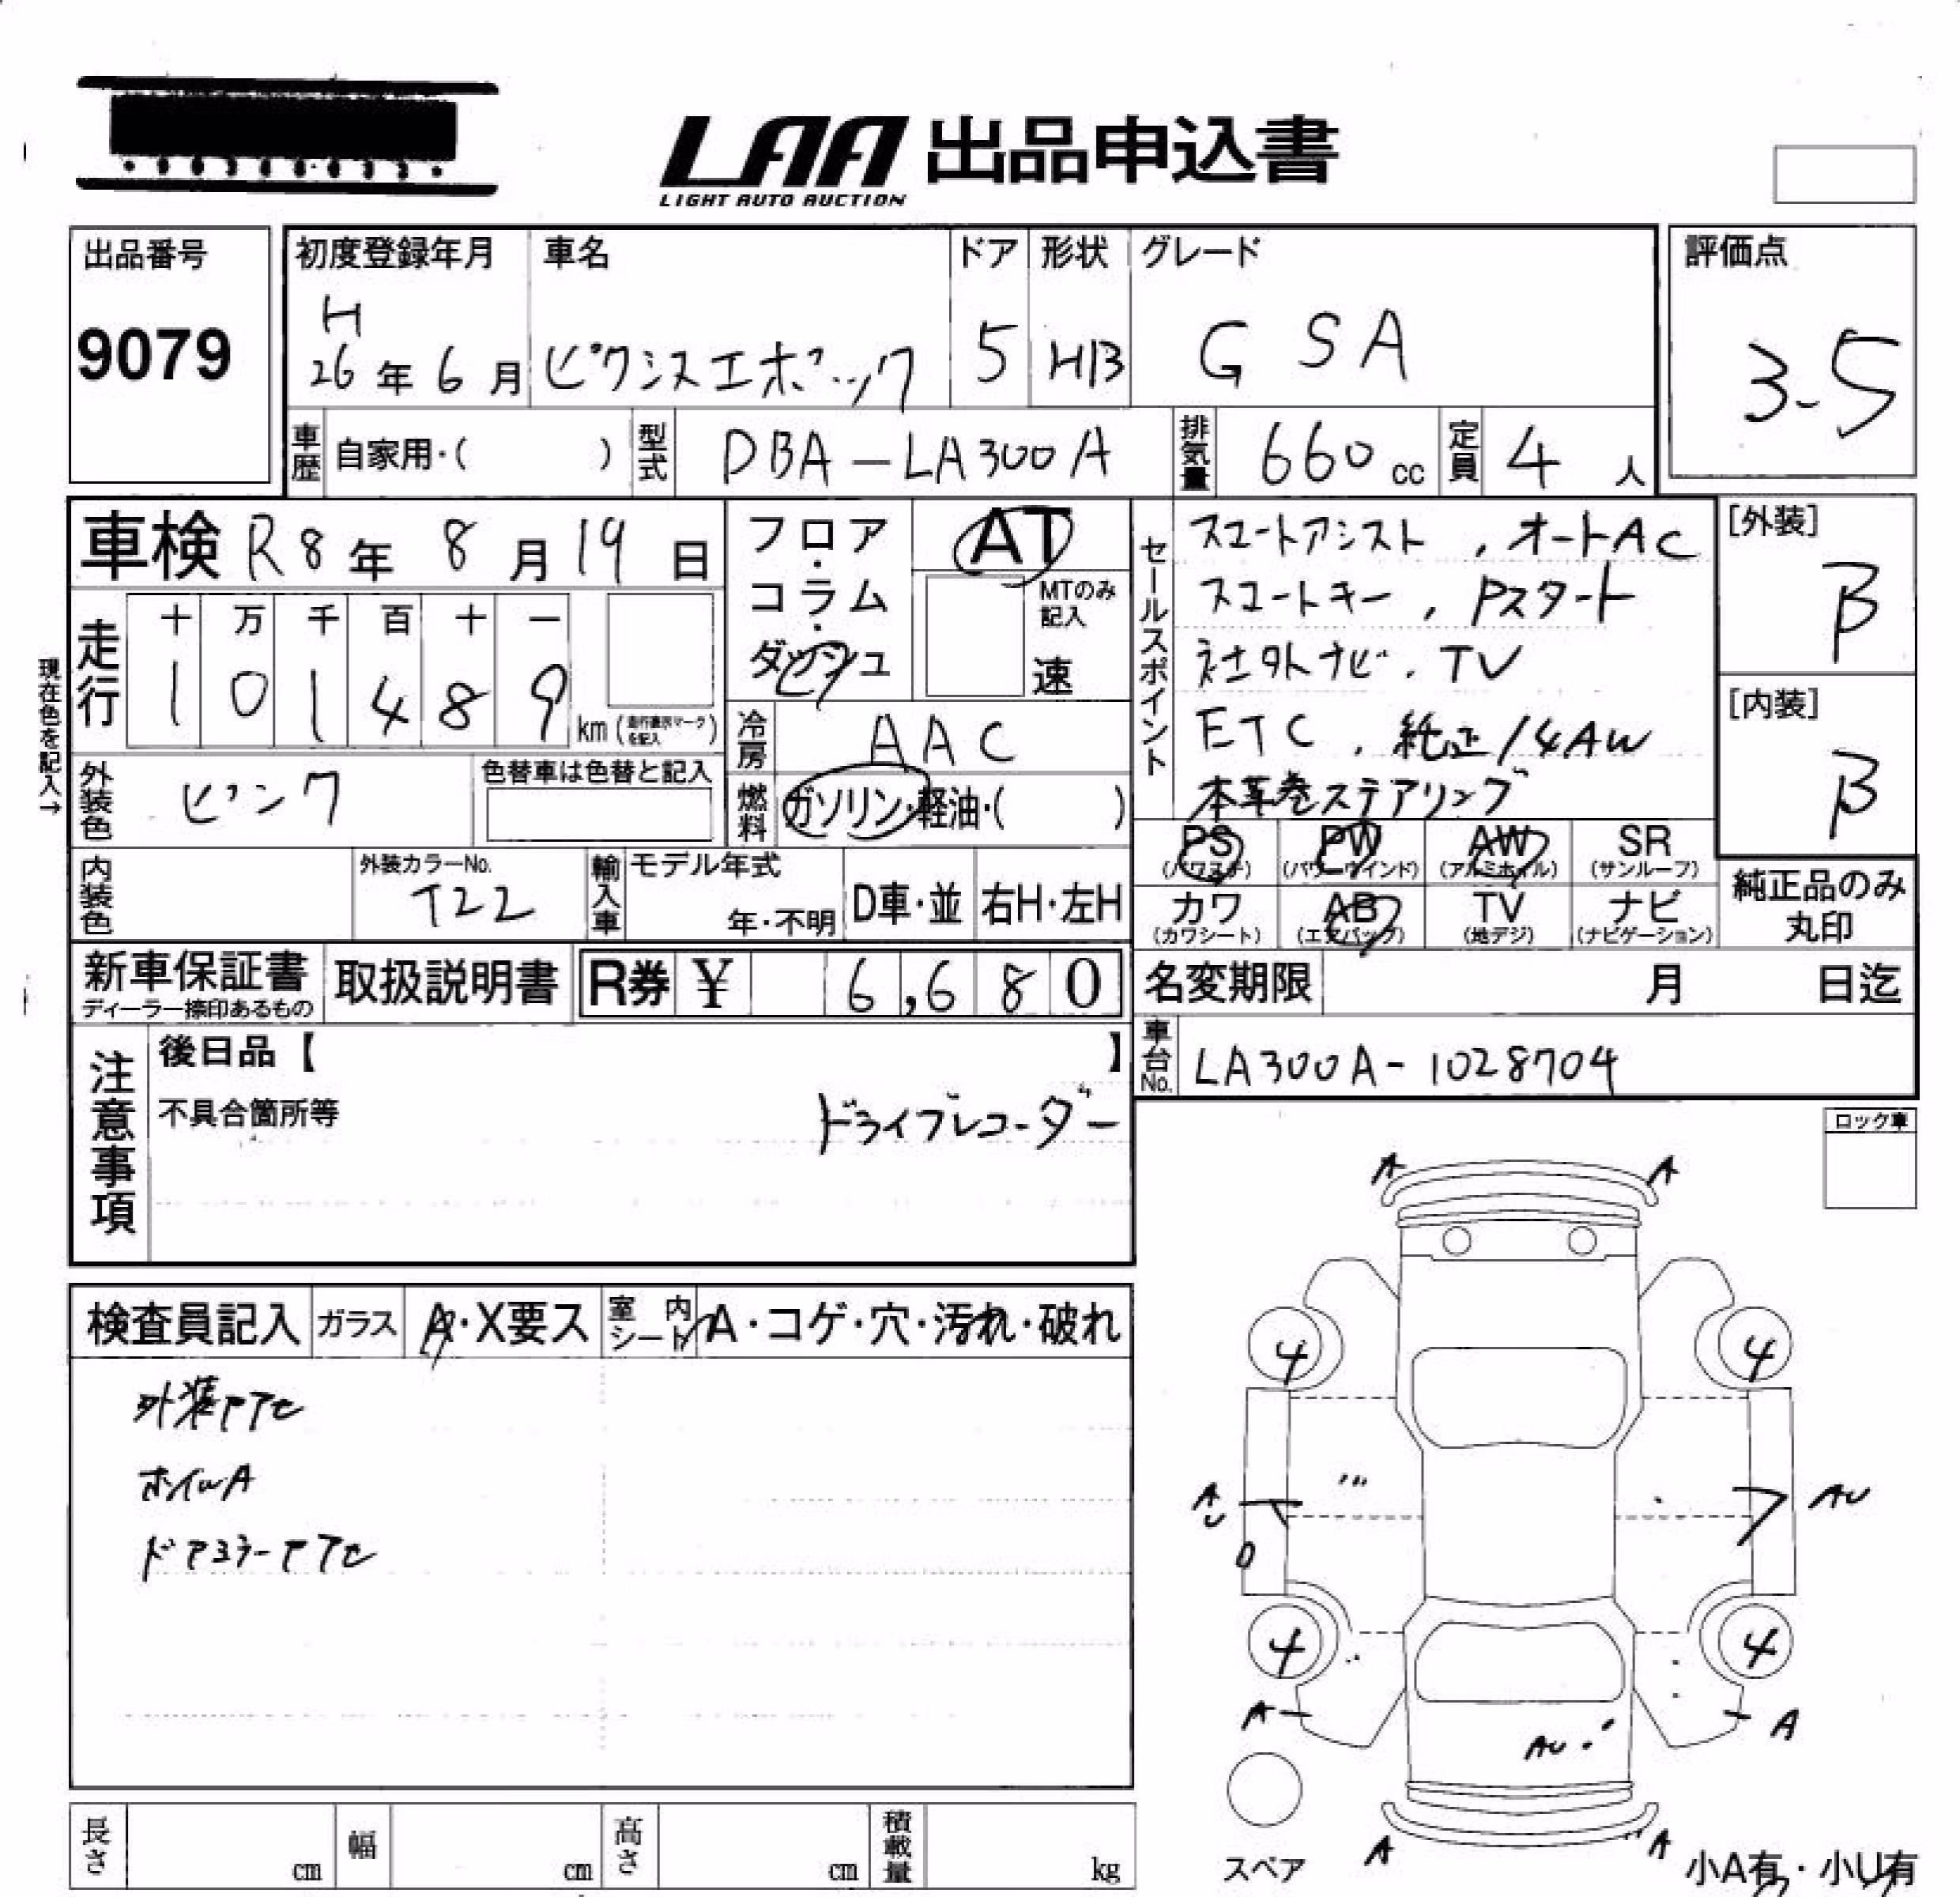 LAA 出品申込書
LIGHT AUTO AUCTION
出品番号
9079
初度登録年月
H
26年 6月
車名
ピクシスエポック
ドア
5
形状
HB
グレード
G SA
評価点
3-5
車歴 自家用・( )
型式 DBA-LA300A
排気量 660cc
定員 4人
車検 R8年 8月 19日
走行
十 万 千 百 十 一
1 0 1 4 8 9
km(走行表示マークを記入)
現在色を記入→
フロア・コラム・ダッシュ
AT
MTのみ記入
速
冷房 AAC
燃料 ガソリン・軽油・( )
セールスポイント
スマートアシスト, オートAC
スマートキー, Pスタート
社外ナビ. TV
ETC, 純正14AW
本革巻ステアリング
[外装]
B
[内装]
B
外装色 ピンク
色替車は色替と記入
内装色
外装カラーNo.
T22
輸入車
モデル年式
年・不明
D車・並
右H・左H
PS
(パワステ)
PW
(パワーウインド)
AW
(アルミホイル)
SR
(サンルーフ)
カワ
(カワシート)
AB
(エアバック)
TV
(地デジ)
ナビ
(ナビゲーション)
純正品のみ
丸印
新車保証書
ディーラー捺印あるもの
取扱説明書
R券 ¥ 6,680
名変期限 月 日迄
車台No. LA300A-1028704
注意事項
後日品【 】
不具合箇所等
ドライブレコーダー
ロック車
検査員記入
ガラス
A・X要ス
室内シート
A・コゲ・穴・汚れ・破れ
ホイルA
A A
4 4
AU AU
4 4
A A
AU
A A
スペア
小A有・小U有
長さ cm
幅 cm
高さ cm
積載量 kg